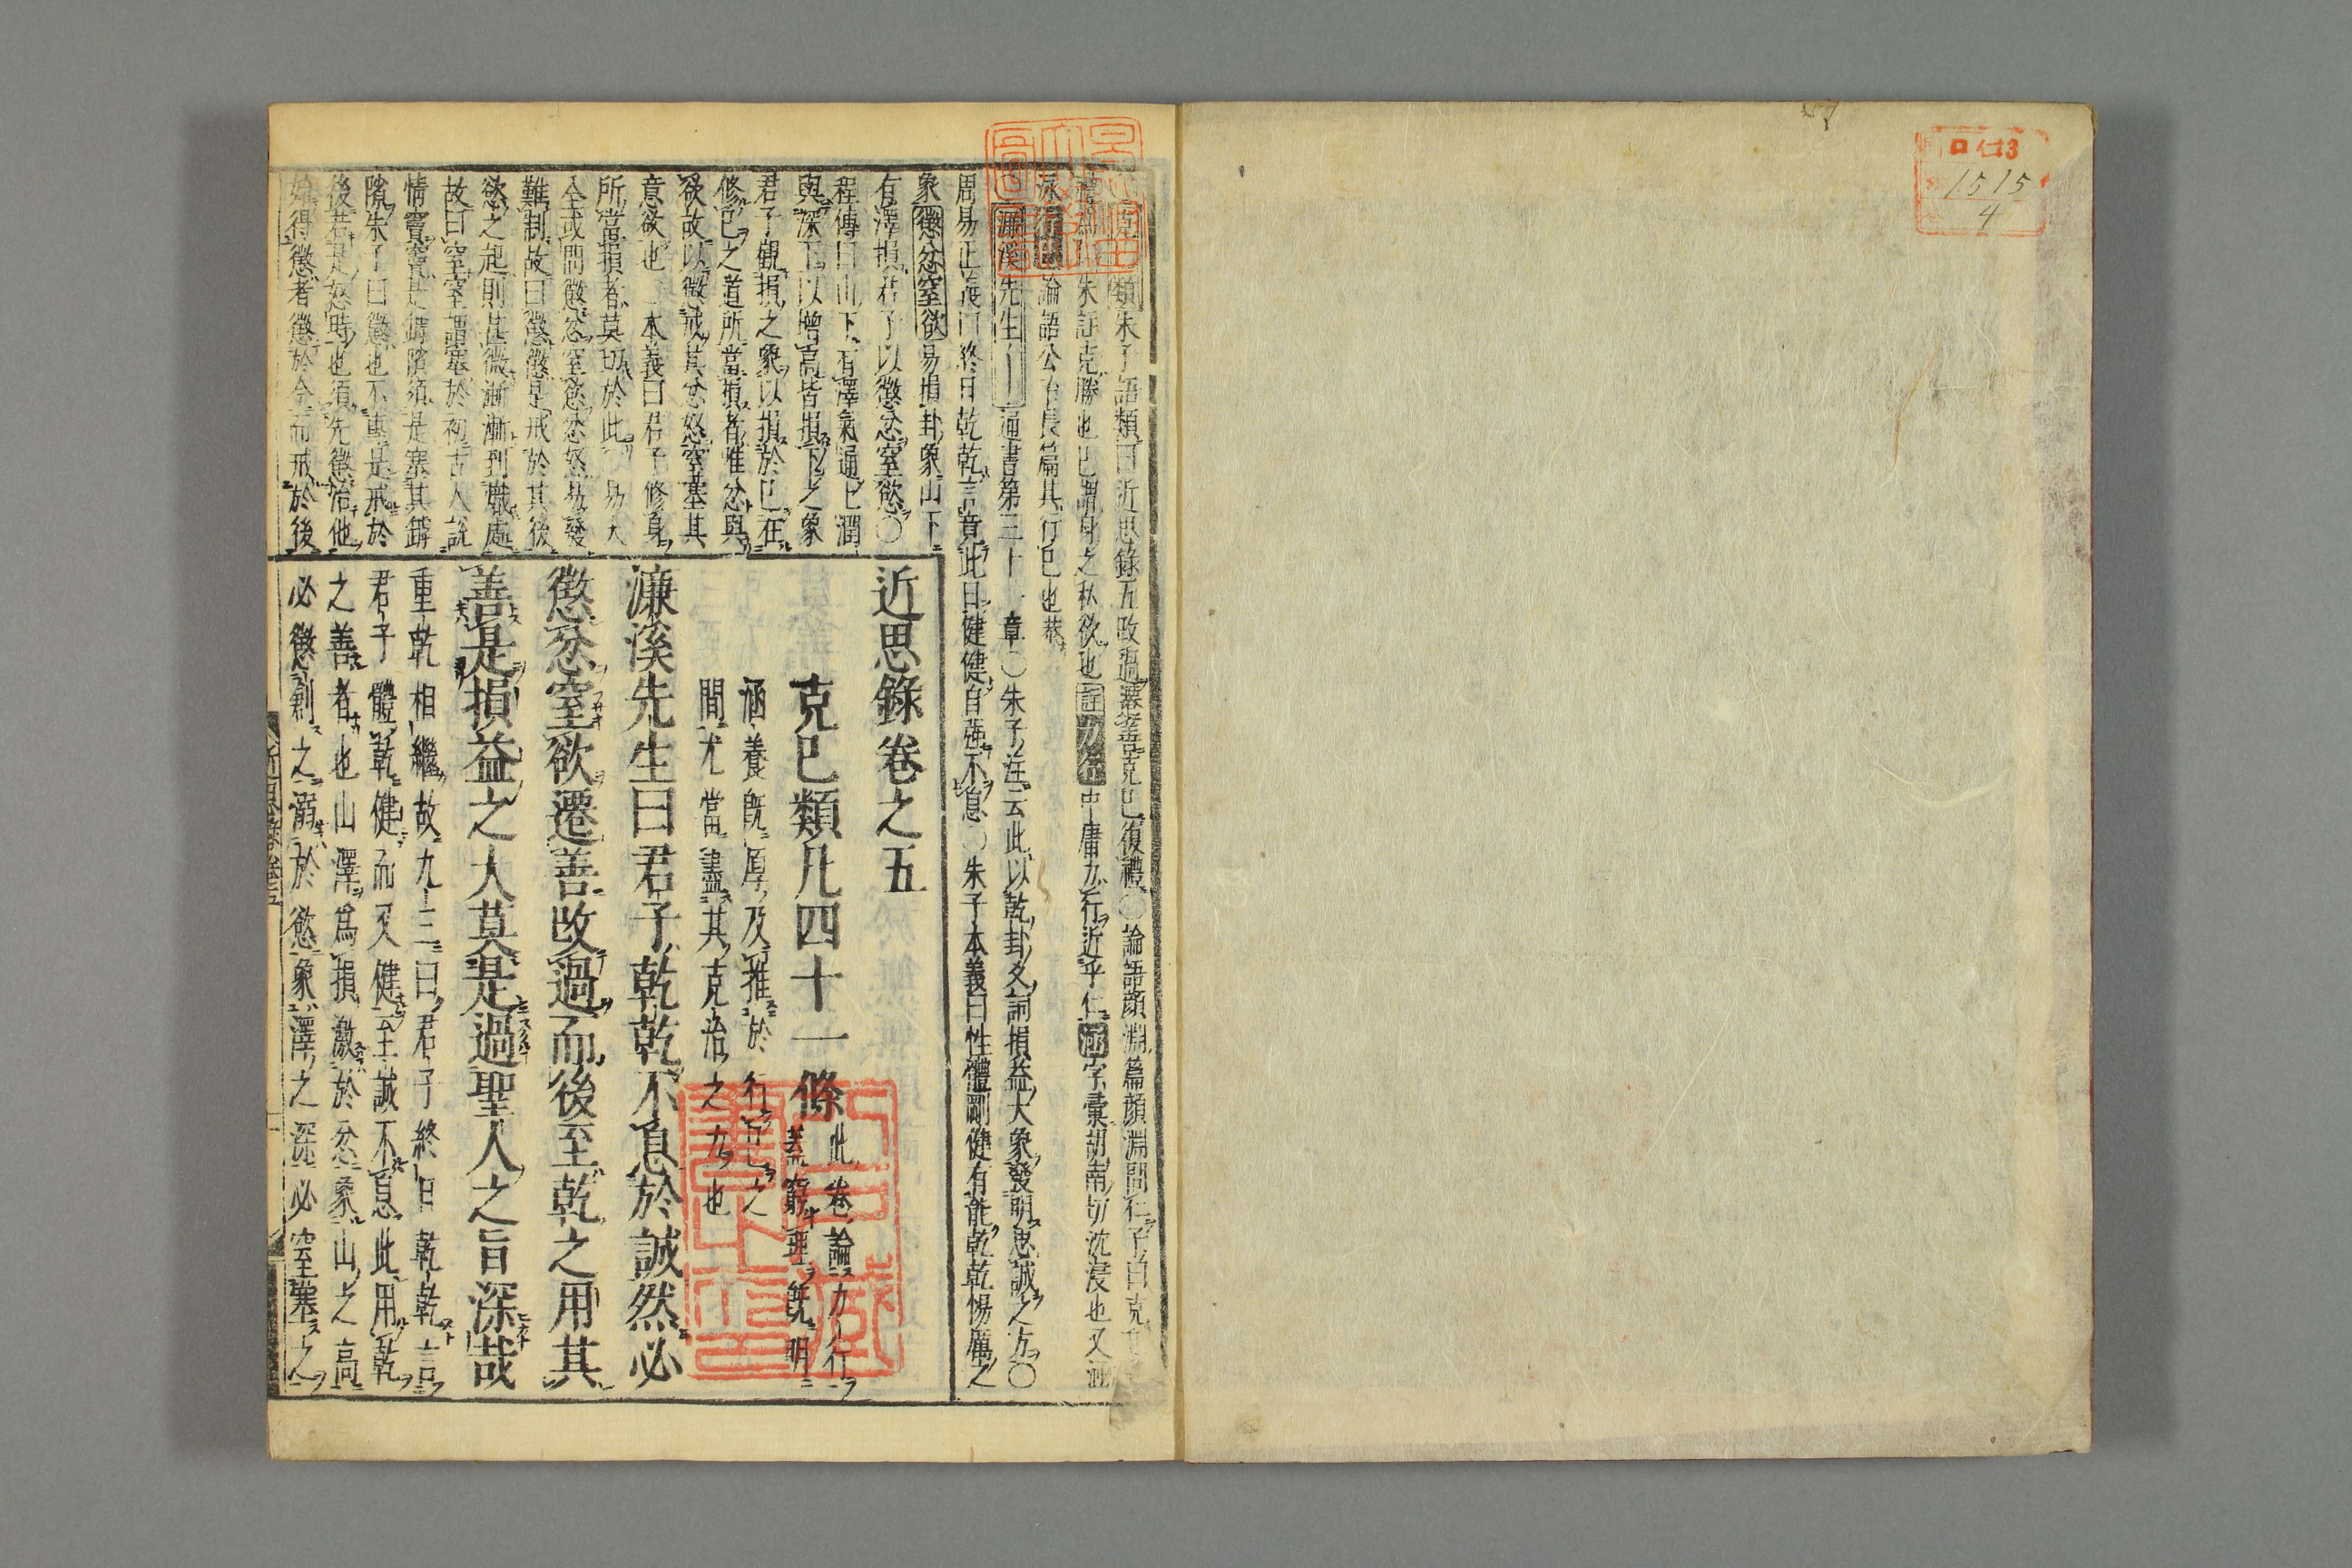 ロ仁13
1515
4
類朱子語類曰近思錄五改過遷善克己復禮○論語顔淵篇顔淵問仁子曰克
朱註克勝也己謂身之私欲也註力行中庸力行近乎仁涵字彙胡南切沈浸也又涵
泳行己論語公冶長篇其行己也恭
濂溪先生通書第三十一章○朱子注云此以乾卦爻詞損益大象發明思誠之方○
周易正義曰終日乾乾言竟此日健健自強不息○朱子本義曰性體剛健有能乾乾惕厲之
象懲忿窒欲易損卦象山下
有澤損君子以懲忿窒慾○
程傳曰山下有澤氣通上潤
與深下以增高皆損下之象
君子觀損之象以損於己在
修己之道所當損者惟忿與
欲故以懲戒其忿怒窒塞其
意欲也○本義曰君子修身
所當損者莫切於此○易大
全或問懲忿窒慾忿怒易發
難制故曰懲懲是戒於其後
慾之起則甚微漸漸到熾處
故曰窒窒謂塞於初古人說
情竇竇是罅隙須是塞其罅
隙朱子曰懲也不專是戒於
後若是怒時也須先懲治他
始得懲者懲於今而戒於後
近思錄卷之五
克己類凡四十一條
此卷論力行
蓋窮理既明
涵養既厚及推於行己之
間尤當盡其克治之力也
濂溪先生曰君子乾乾不息於誠然必
懲忿窒欲遷善改過而後至乾之用其
善是損益之大莫是過聖人之旨深哉
重乾相繼故九三曰君子終日乾乾言
君子體乾健而又健至誠不息此用乾
之善者也山澤爲損激於忿象山之高
必懲創之溺於慾象澤之深必窒塞之
近思錄卷五